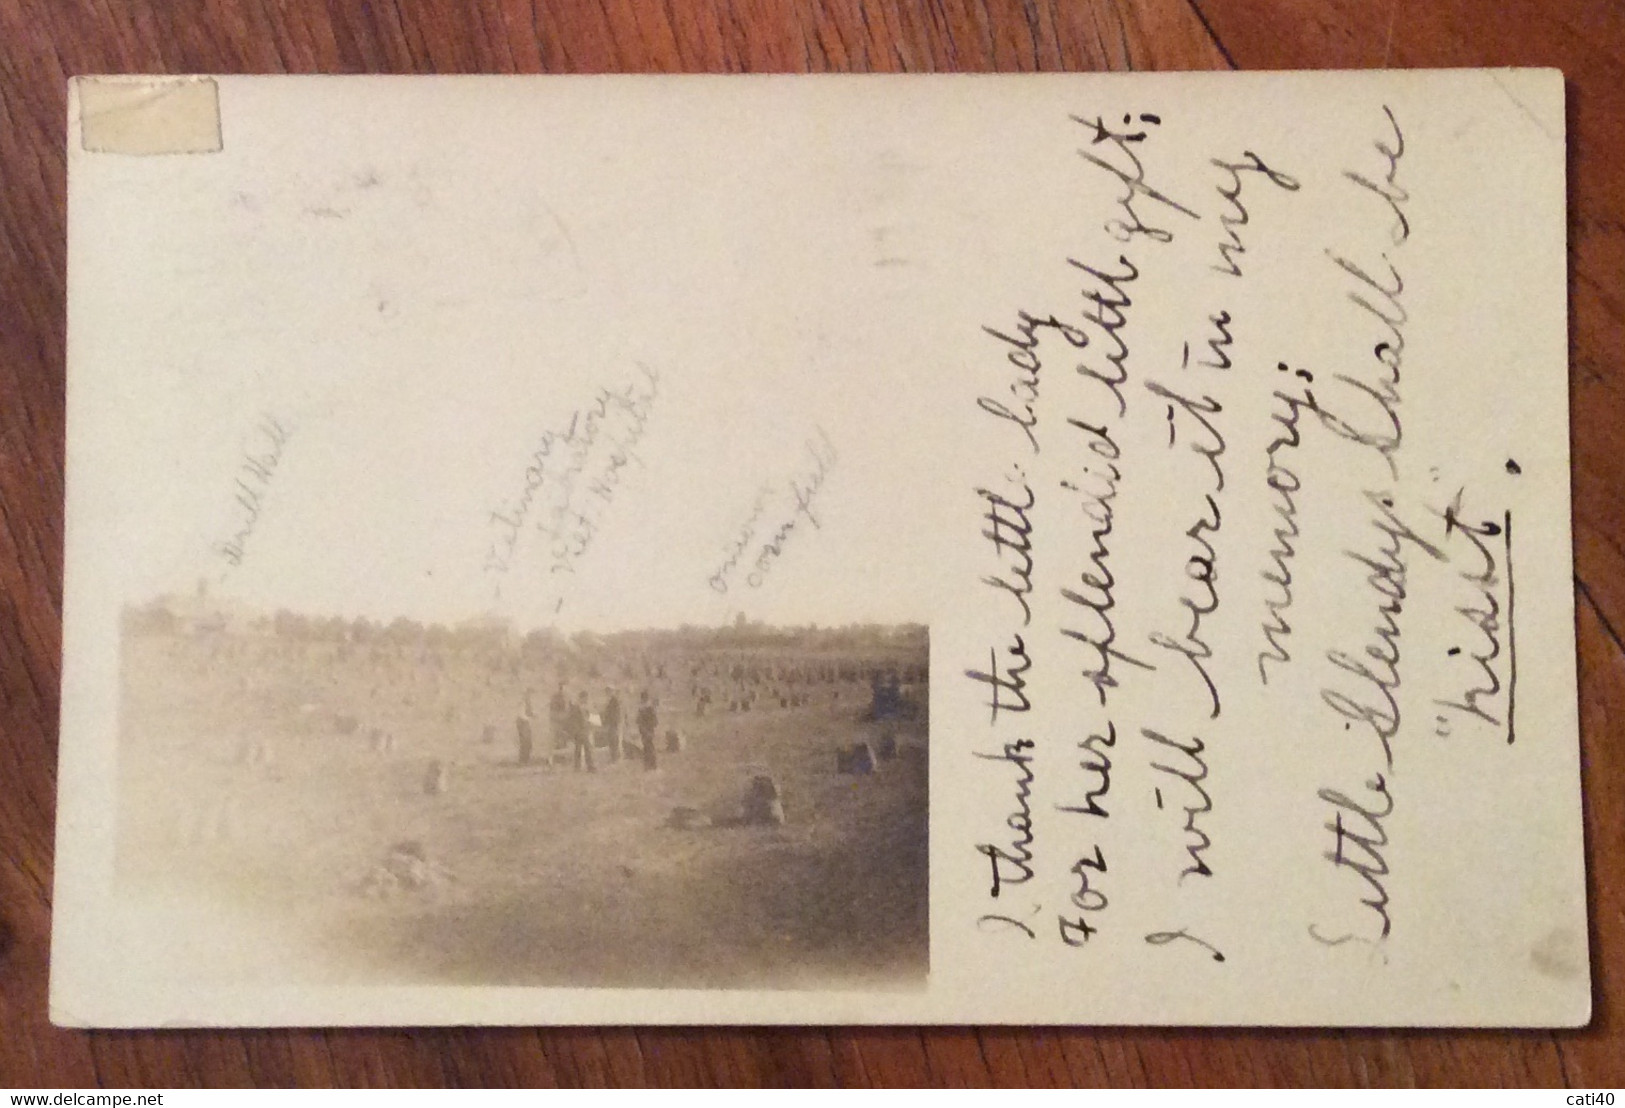 - Drill Hall
- Vetinary
Labratory
- Vet. Hospital
our own
corn field
I thank the little lady
For her splendid little gyft;
I will bear it in my
memory;
Little Slendys shall be
"hisst".
www.delcampe.net
cati40